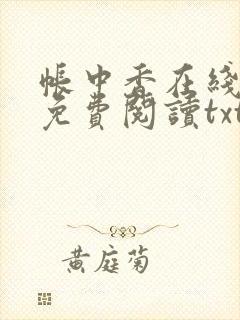 帳中香在綫
免費閱讀txt
黃庭菊